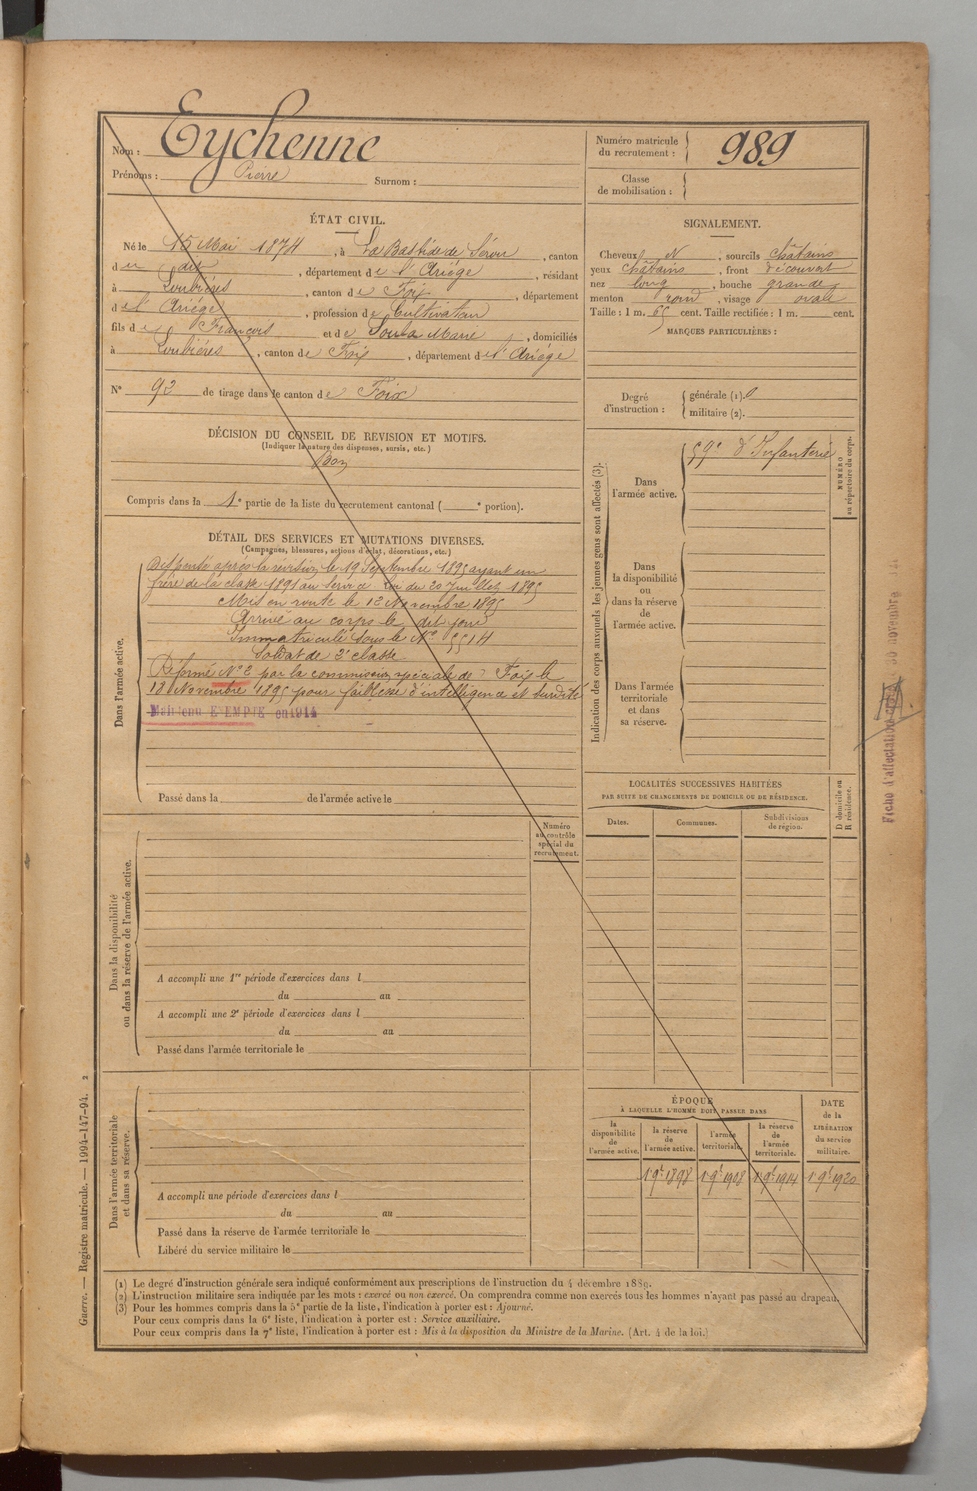 Nom : Eychenne
Prénoms : Pierre Surnom :
Numéro matricule
du recrutement : 989
Classe
de mobilisation :
ÉTAT CIVIL.
Né le 15 Mai 1874, à La Bastide de Sérou, canton
d u dit, département d e l'Ariége, résidant
à Loubières, canton d e Foix, département
d e l'Ariége, profession d e Cultivateur
fils d e François et d e Soula Marie, domiciliés
à Loubières, canton d e Foix, département d e l'Ariége
N° 92 de tirage dans le canton d e Foix
SIGNALEMENT.
Cheveux N, sourcils châtains
yeux châtains, front découvert
nez long, bouche grande
menton rond, visage ovale
Taille : 1 m. 65 cent. Taille rectifiée : 1 m. cent.
MARQUES PARTICULIÈRES :
Degré
d'instruction :
générale (1). 0
militaire (2).
DÉCISION DU CONSEIL DE REVISION ET MOTIFS.
(Indiquer la nature des dispenses, sursis, etc.)
Bon
Compris dans la 1e partie de la liste du recrutement cantonal ( e portion).
DÉTAIL DES SERVICES ET MUTATIONS DIVERSES.
(Campagnes, blessures, actions d'éclat, décorations, etc.)
Dans l'armée active.
Dispensé après la révision le 19 Septembre 1895 ayant un
frère de la classe 1891 au service. Loi du 20 Juillet 1895
Mis en route le 12 Novembre 1895
Arrivé au corps le dit jour
Immatriculé sous le N° 5514
Soldat de 2e classe
Réformé N° 2 par la commission spéciale de Foix le
18 Novembre 1895 pour faiblesse d'intelligence et surdité
Maintenu EXEMPTE en 1914
Passé dans la de l'armée active le
Indication des corps auxquels les jeunes gens sont affectés (3).
Dans
l'armée active.
59e d'Infanterie
NUMÉRO
au répertoire du corps.
Dans
la disponibilité
ou
dans la réserve
de
l'armée active.
Dans l'armée
territoriale
et dans
sa réserve.
Fiche d'affectation
30 novembre
LOCALITÉS SUCCESSIVES HABITÉES
PAR SUITE DE CHANGEMENTS DE DOMICILE OU DE RÉSIDENCE.
Dates.
Communes.
Subdivisions
de région.
D domicile ou
R résidence.
Dans la disponibilité
ou dans la réserve de l'armée active.
Numéro
au contrôle
spécial du
recrutement.
A accompli une 1re période d'exercices dans l
du au
A accompli une 2e période d'exercices dans l
du au
Passé dans l'armée territoriale le
Dans l'armée territoriale
et dans sa réserve.
A accompli une période d'exercices dans l
du au
Passé dans la réserve de l'armée territoriale le
Libéré du service militaire le
ÉPOQUE
À LAQUELLE L'HOMME DOIT PASSER DANS
la
disponibilité
de
l'armée active.
la réserve
de
l'armée active.
l'armée
territoriale.
la réserve
de
l'armée
territoriale.
DATE
de la
LIBÉRATION
du service
militaire.
1 9bre 1898 1 9bre 1908 1 9bre 1914 1 9bre 1920
(1) Le degré d'instruction générale sera indiqué conformément aux prescriptions de l'instruction du 4 décembre 1889.
(2) L'instruction militaire sera indiquée par les mots : exercé ou non exercé. On comprendra comme non exercés tous les hommes n'ayant pas passé au drapeau.
(3) Pour les hommes compris dans la 5e partie de la liste, l'indication à porter est : Ajourné.
Pour ceux compris dans la 6e liste, l'indication à porter est : Service auxiliaire.
Pour ceux compris dans la 7e liste, l'indication à porter est : Mis à la disposition du Ministre de la Marine. (Art. 4 de la loi.)
Guerre. — Registre matricule. — 1994-147-94. 2